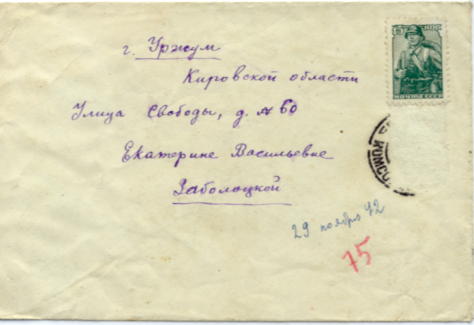 г. Уржум
Кировской области
Улица Свободы, д. № 60
Екатерине Васильевне
Заболоцкой
29 ноября 42
75